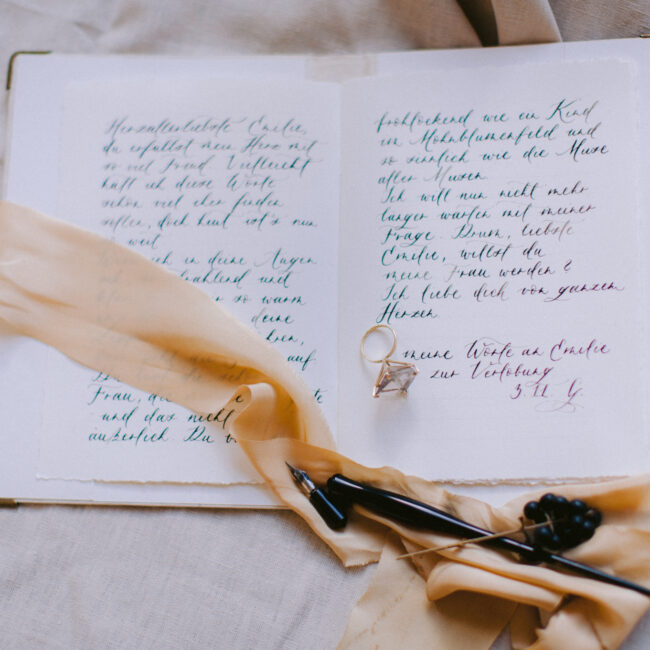 Herzallerliebste Emilie,
du erfüllst mein Herz mit
so viel Freud. Vielleicht
hätt ich diese Worte
schon viel eher finden
sollen, doch heut ist's nun
so weit
ich in deine Augen
strahlend und
so warm
deine
auf
Frau, die
und das nicht
äußerlich. Du
frohlockend wie ein Kind
im Mohnblumenfeld und
so sinnlich wie die Muse
aller Musen.
Ich will nun nicht mehr
länger warten mit meiner
Frage. Drum, liebste
Emilie, willst du
meine Frau werden?
Ich liebe dich von ganzem
Herzen
meine Worte an Emilie
zur Verlobung
3. 11. G.